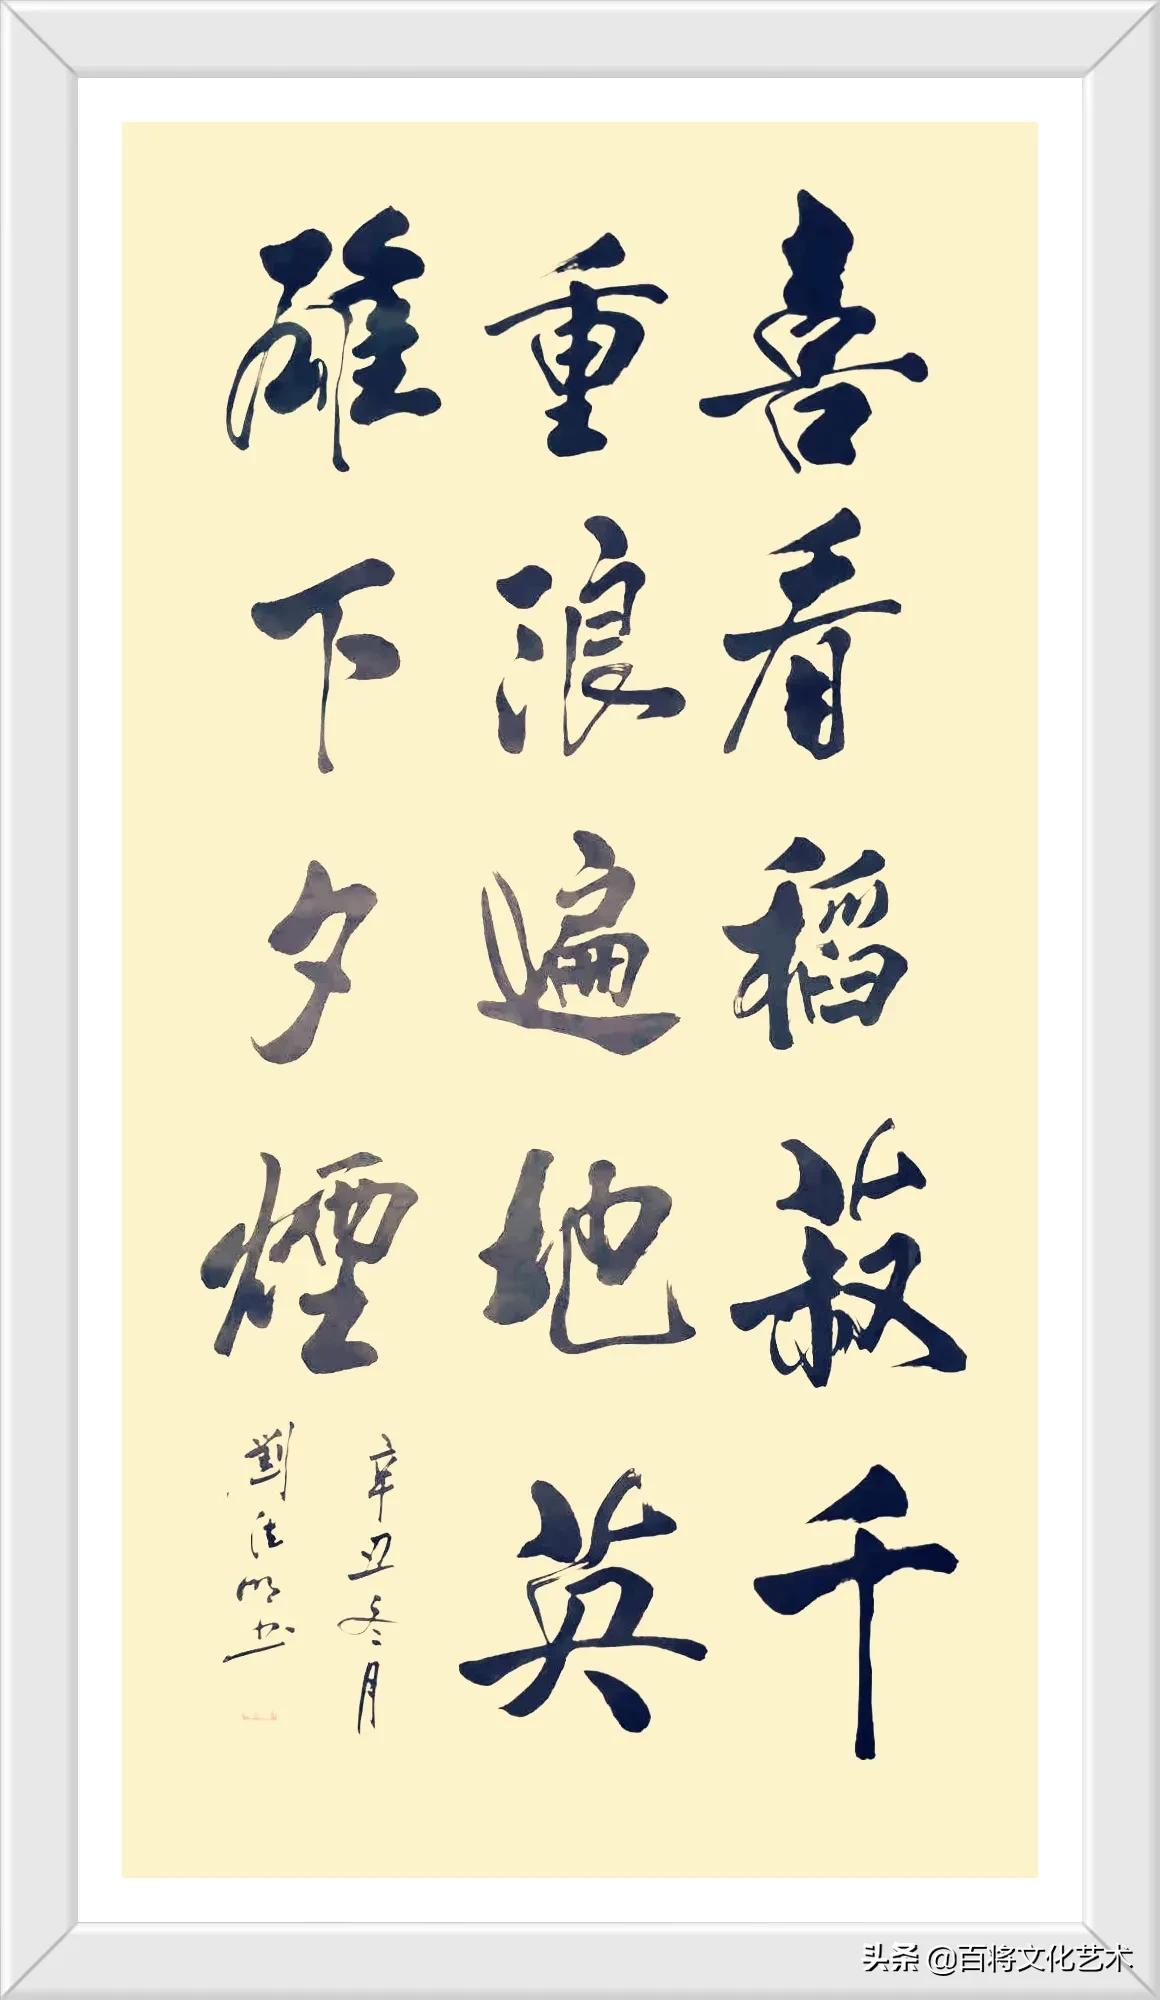 喜看稻菽千
重浪遍地英
雄下夕煙
辛丑冬月
劉法明书
头条 @百将文化艺术